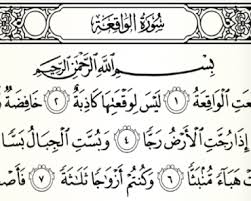 سُورَةُ الْوَاقِعَةِ
بِسْمِ اللَّهِ الرَّحْمَٰنِ الرَّحِيمِ
عَتِ الْوَاقِعَةُ ١ لَيْسَ لِوَقْعَتِهَا كَاذِبَةٌ ٢ خَافِضَةٌ
إِذَا رُجَّتِ الْأَرْضُ رَجًّا ٤ وَبُسَّتِ الْجِبَالُ بَسًّا
تْ هَبَاءً مُّنبَثًّا ٦ وَكُنتُمْ أَزْوَاجًا ثَلَاثَةً ٧ فَأَصْ